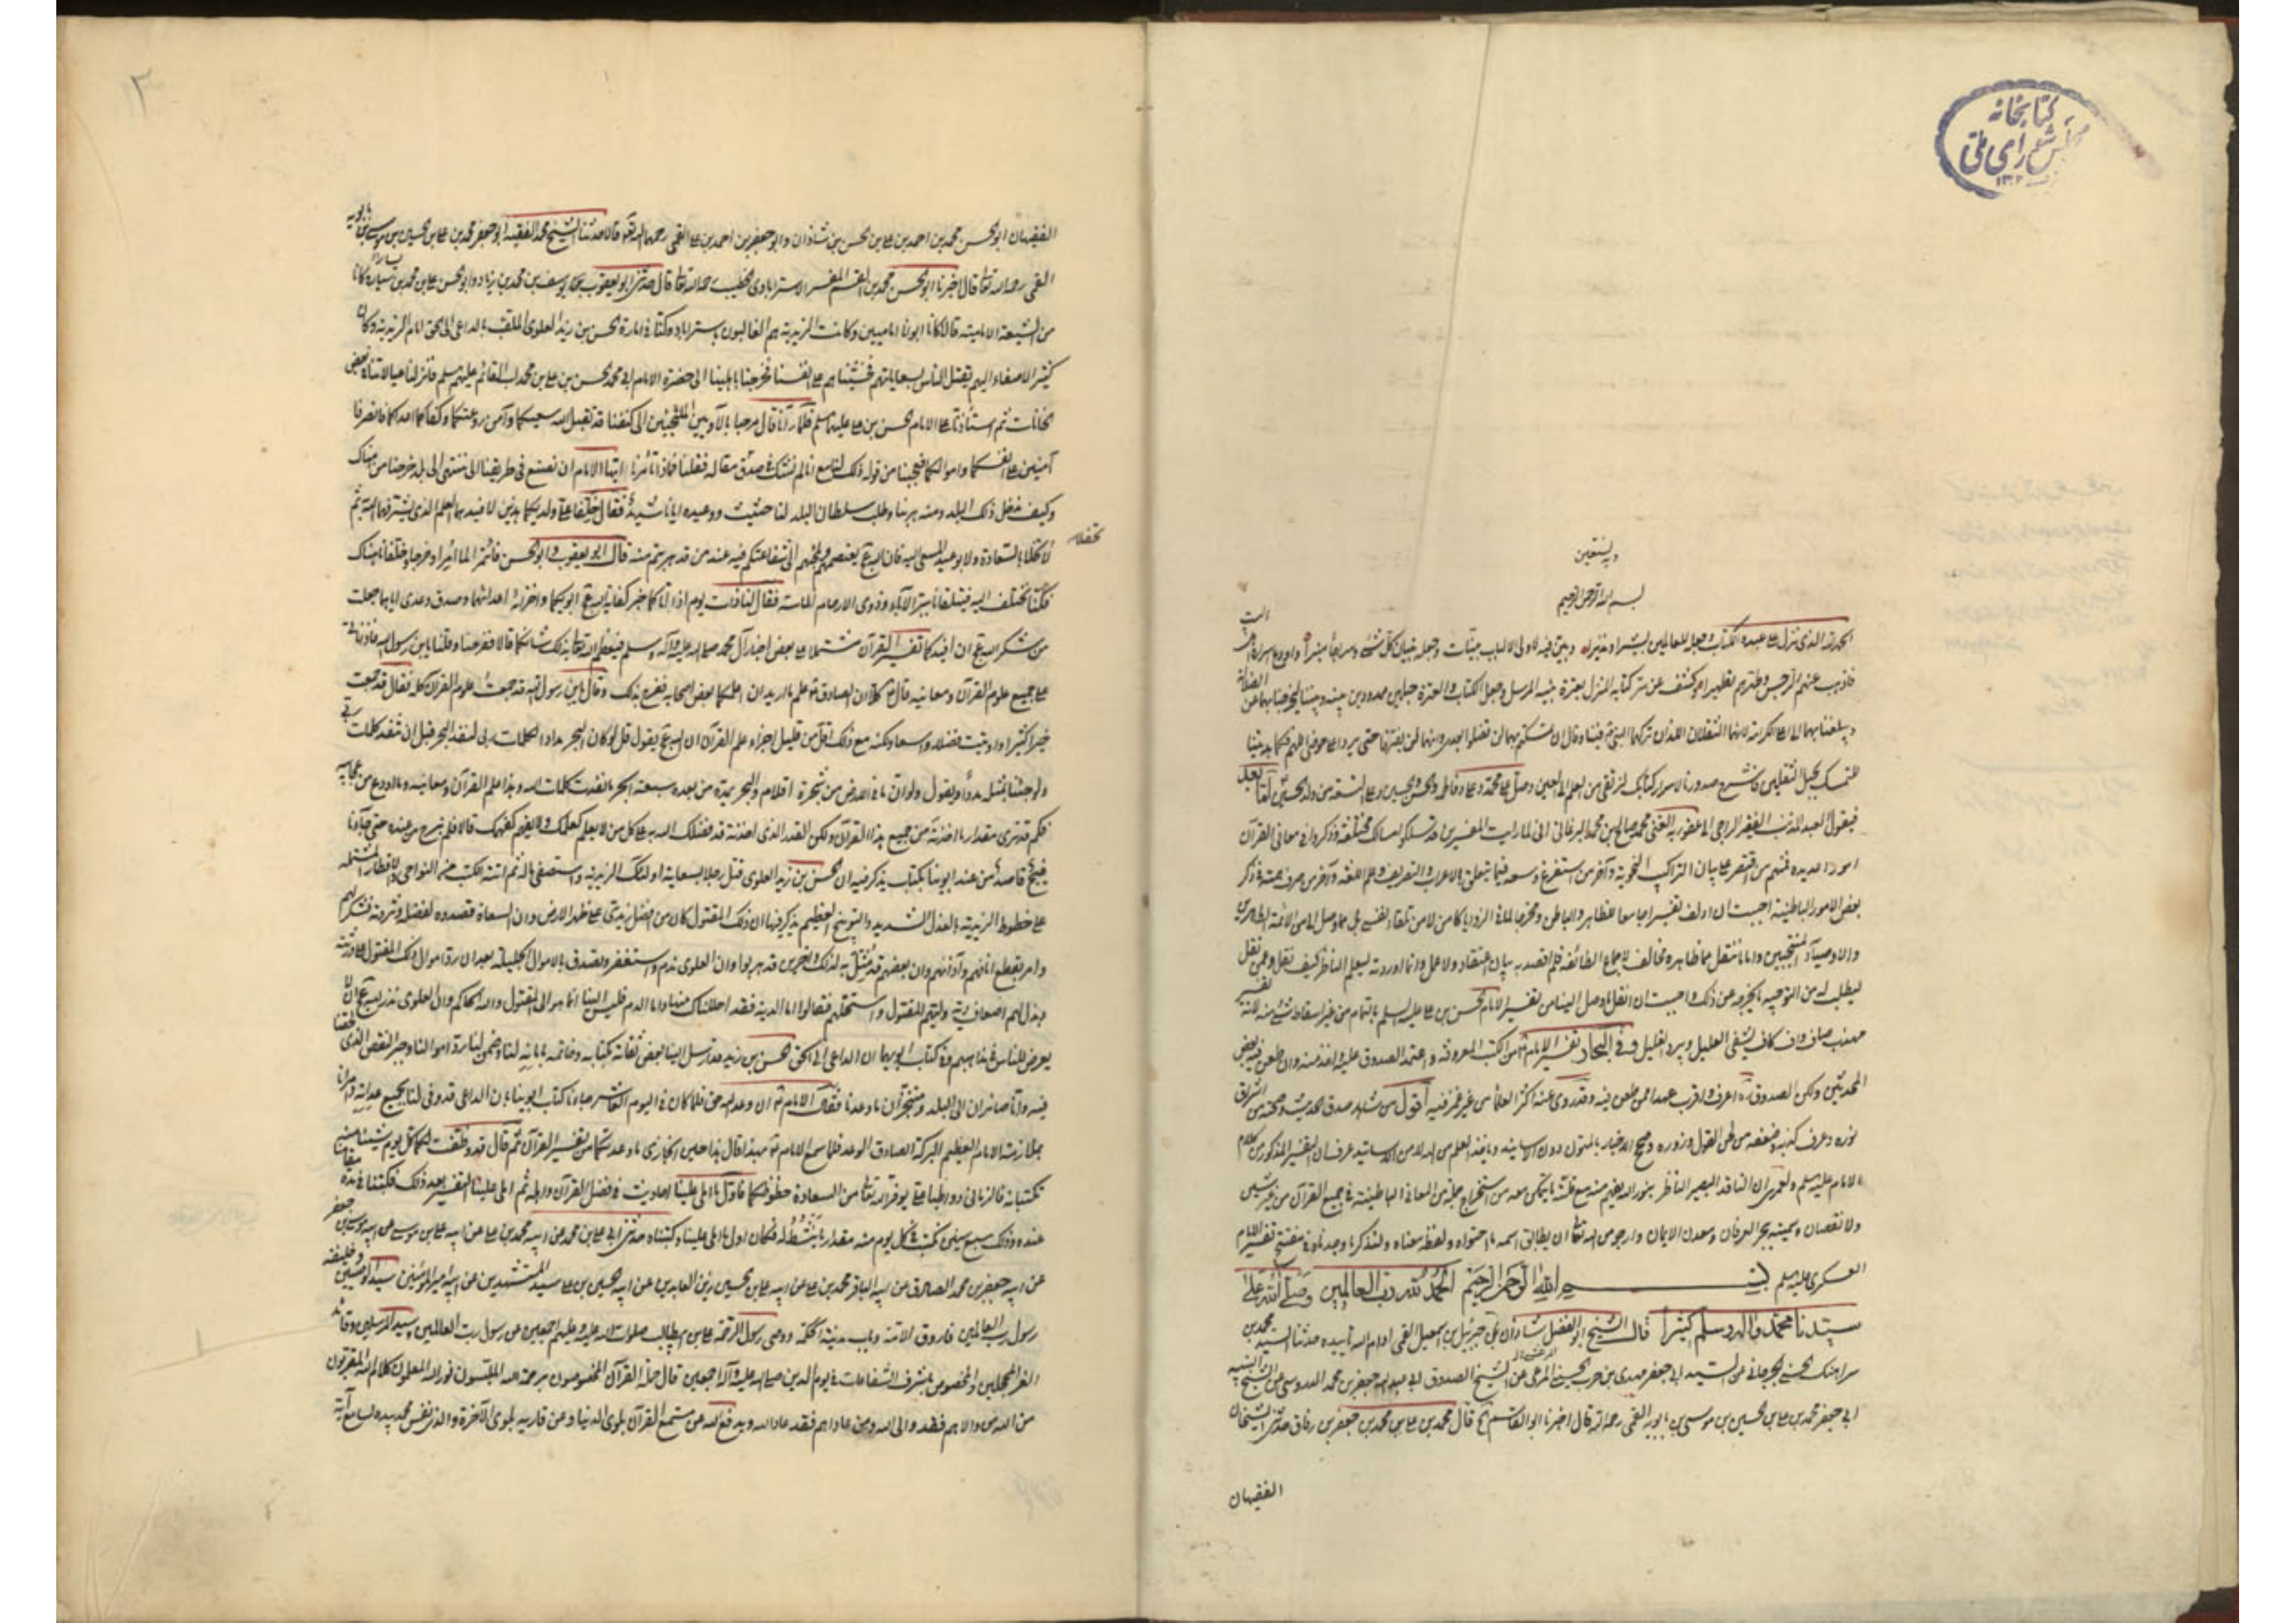 كتابخانه
مجلس شورای ملی
١٣٠٢
وبه نستعين
بسم الله الرحمن الرحيم
الحمد لله الذى نزل على عبده الكتاب وجعله للعالمين بشيرا ونذيرا وبين فيه لاولى الالباب بينات وجعله تبيان كل شئ وسراجا منيرا
فاذهب عنهم الرجس وطهرهم تطهيرا وكشف عن سر كتابه المنزل بعترة نبيه المرسل وجعل الكتاب والعترة حبلين ممدودين بينه وبيننا ليخرجنا بهما عن الضلالة
لانهما الثقلان اللذان تركهما النبى فينا وقال ان تمسكتم بهما لن تضلوا بعدى وانهما لن يفترقا حتى يردا على حوضى اللهم فكما هديتنا
للتمسك بحبل الثقلين فاشرح صدورنا لاسرار كتابك لنرتقى من العلم الى اليقين وصل على محمد وعلى وفاطمة والحسن والحسين وعلى التسعة من ولد الحسين اما بعد
فيقول العبد المذنب الفقير الراجى الى عفو ربه الغنى محمد صالح بن محمد البرغانى انى لما رايت المفسرين قد سلكوا مسالك مختلفة وذكروا فى معانى القرآن
امورا عديدة فمنهم من اقتصر على بيان التراكيب النحوية وآخر من استفرغ وسعه فيما يتعلق بالاعراب والتصريف وعلم اللغة وآخر من صرف همته فى ذكر
بعض الامور الباطنية احببت ان اؤلف تفسيرا جامعا للظاهر والباطن ومخرجا لما فى الزوايا كامن لا من تلقاء نفسى بل مما وصل الى من الائمة الطاهرين
والاوصياء المنتجبين واما ما ننقل مما ظاهره مخالف لاجماع الطائفة فلم اقصد به بيان اعتقاد ولا عمل وانما اوردته ليعلم الناظر كيف نقل وعمن نقل
ليطلب له من التوجيه ما يخرجه عن ذلك واحببت ان انقل ما وصل الينا من تفسير الامام الحسن بن على عليه السلم بالتمام من غير اسقاط شئ منه لانه تفسير
مهذب صاف واف كاف يشفى العليل ويبرد الغليل وفى البحار تفسير الامام من الكتب المعروفة واعتمد الصدوق عليه واخذ منه وان طعن فيه بعض
المحدثين ولكن الصدوق اعرف واقرب عهدا ممن طعن فيه وقد روى عنه اكثر العلماء من غير غمز فيه اقول من شاهد صدق الحديث وصحته من اشراق
نوره وعرف كذبه وضعفه من لحن القول وزوره وصحح الاخبار بالمتون دون الاسانيد وياخذ العلم من الله لا من الاسانيد عرف ان التفسير المذكور من كلام
الامام عليه السلم
ولا نقصان وسميته بحر العرفان ومعدن الايمان وارجو من الله تعالى ان يطابق اسمه ما احتواه ولفظه معناه ولنذكر ما وجدناه فى مفتتح تفسير الامام
العسكرى عليه السلم بسم الله الرحمن الرحيم الحمد لله رب العالمين وصلى الله على
سيدنا محمد وآله وسلم كثيرا قال الشيخ ابو الفضل شاذان بن جبرئيل بن اسمعيل القمى ادام الله تاييده حدثنا السيد محمد بن
سراهنك الحسنى الجرجانى عن السيد ابى جعفر مهدى بن حرب الحسينى المرعشى عن الشيخ الصدوق ابى عبد الله جعفر بن محمد الدوريستى عن ابيه
ابى جعفر محمد بن على بن الحسين بن موسى بن بابويه القمى رحمه الله قال اخبرنا ابو القاسم ح قال محمد بن على بن محمد بن جعفر بن دقاق حدثنى الشيخان
الفقيهان
١٢
الفقيهان ابو الحسن محمد بن احمد بن على بن الحسن بن شاذان وابو جعفر بن احمد بن على القمى رحمهما الله قالا حدثنا الشيخ الفقيه ابو جعفر محمد بن على بن الحسين بن موسى بن بابويه
القمى رحمه الله تعالى قال اخبرنا ابو الحسن محمد بن القسم المفسر الاسترابادى الخطيب رحمه الله تعالى قال حدثنى ابو يعقوب يوسف بن محمد بن زياد وابو الحسن على بن محمد بن سيار وكانا
من الشيعة الامامية قالا كانا ابوانا اماميين وكانت الزيدية هم الغالبون باستراباد وكنا فى امارة الحسن بن زيد العلوى الملقب بالداعى الى الحق امام الزيدية وكان
كثير الاصغاء اليهم يقتل الناس بسعاياتهم فخشيناهم على انفسنا فخرجنا باهلينا الى حضرة الامام ابى محمد الحسن بن على بن محمد اب القائم عليهم السلم فانزلنا عيالاتنا فى بعض
الخانات ثم استاذنا على الامام الحسن بن على عليهما السلم فلما رآنا قال مرحبا بالآوين الينا الملتجئين الى كنفنا قد تقبل الله سعيكما وآمن روعتكما وكفاكما اعدائكما فانصرفا
آمنين على انفسكما واموالكما فعجبنا من قوله ذلك لنا مع انا لم نشك فى صدق مقاله فقلنا فماذا تأمرنا ايها الامام ان نصنع فى طريقنا الى ان ننتهى الى بلد خرجنا من هناك
وكيف ندخل ذلك البلد ومنه هربنا وطلب سلطان البلد لنا حثيث ووعيده ايانا شديد فقال خلفا على ولديكما هذين لافيدهما العلم الذى يشرفهما الله ثم
لا تحفلا بالسعاة ولا بوعيد المسعى اليه فان الله عج يقصم السعاة ويلجئهم الى شفاعتكم فيهم عند من قد هربتم منه قال ابو يعقوب وابو الحسن فائتمرا لما امرا وخرجا وخلفانا هناك
تحفلا
فكنا نختلف اليه فيتلقانا ببر الآباء وذوى الارحام الماسة فقال لنا ذات يوم اذا اتاكما خبر كفاية الله عج ابويكما واخزائه اعدائهما وصدق وعدى اياهما جعلت
من شكر الله عج ان افيدكما تفسير القرآن مشتملا على بعض اخبار آل محمد صلى الله عليه وآله وسلم فيعظم الله تعالى بذلك شانكما قالا ففرحنا وقلنا يابن رسول الله فاذا ناتى
على جميع علوم القرآن ومعانيه قال كلا ان الصادق علم ما اريد ان اعلمكما بعض اصحابه ففرح بذلك وقال يابن رسول الله قد جمعت علوم القرآن كله فقال قد جمعت
خيرا كثيرا واوتيت فضلا واسعا ولكنه مع ذلك اقل من قليل اجزاء علم القرآن ان الله عج يقول قل لو كان البحر مدادا لكلمات ربى لنفد البحر قبل ان تنفد كلمات ربى
ولو جئنا بمثله مددا ويقول ولو ان ما فى الارض من شجرة اقلام والبحر يمده من بعده سبعة ابحر ما نفدت كلمات الله وهذا علم القرآن ومعانيه وما اودع من عجايبه
فكم قد ترى مقدار ما اخذته من جميع هذا القرآن ولكن القدر الذى اخذته قد فضلك الله به على كل من لا يعلم كعلمك ولا يفهم كفهمك قالا فلم نبرح من عنده حتى جاءنا
فيج قاصد من عند ابوينا بكتاب يذكر فيه ان الحسن بن زيد العلوى قتل رجلا بسعاية اولئك الزيدية واستصفى ماله ثم اتته الكتب من النواحى والاقطار المشتملة
على خطوط الزيدية بالعذل الشديد والتوبيخ العظيم يذكر فيها ان ذلك المقتول كان من افضل زيدى على ظهر الارض وان السعاة قصدوه لفضله وثروته فتنكر لهم
وامر بقطع انافهم وآذانهم وان بعضهم قد مثل به لذلك وآخرين قد هربوا وان العلوى ندم واستغفر وتصدق بالاموال الجليلة بعد ان رد اموال ذلك المقتول على ورثته
وبذل لهم اضعاف دية وليهم المقتول واستحلهم فقالوا اما الدية فقد احللناك منها واما الدم فليس الينا انما هو الى المقتول والله الحاكم وان العلوى نذر لله عج ان لا
يعرض للناس فى مذاهبهم وفى كتاب ابويهما ان الداعى الى الحق الحسن بن زيد قد ارسل الينا ببعض ثقاته بكتابه وخاتمه بامانه لنا وضمن لنا رد اموالنا وجبر النقص الذى لحقنا
فيه وانا صائران الى البلد ومتنجزان ما وعدنا فقال الامام ان وعد الله حق فلما كان فى اليوم العاشر جاءنا كتاب ابوينا بان الداعى قد وفى لنا بجميع عداته وامرنا
بملازمة الامام العظيم البركة الصادق الوعد فلما سمع الامام بهذا قال هذا حين انجازى ما وعدتكما من تفسير القرآن ثم قال قد وظفت لكما كل يوم شيئا منه
تكتبانه فالزمانى وواظبا على يوفر الله تعالى من السعادة حظوظكما فاول ما املى علينا احاديث فى فضل القرآن واهله ثم املى علينا التفسير بعد ذلك فكتبنا فى مدة مقامنا
عنده وذلك سبع سنين نكتب فى كل يوم منه مقدار ما ينشط له فكان اول ما املى علينا وكتبناه حدثنى ابى على بن محمد عن ابيه محمد بن على عن ابيه على بن موسى عن ابيه موسى بن جعفر
عن ابيه جعفر بن محمد الصادق عن ابيه الباقر محمد بن على عن ابيه على بن الحسين زين العابدين عن ابيه الحسين بن على سيد المستشهدين عن ابيه امير المؤمنين سيد الوصيين وخليفة
رسول رب العالمين فاروق الامة وباب مدينة الحكمة ووصى رسول الرحمة على بن ابيطالب صلوات الله عليه وعليهم اجمعين عن رسول رب العالمين سيد المرسلين وقائد
الغر المحجلين والمخصوص باشرف الشفاعات فى يوم الدين صلى الله عليه وآله اجمعين قال حملة القرآن المخصوصون برحمة الله الملبسون نور الله المعلمون كلام الله المقربون
من الله من والاهم فقد والى الله ومن عاداهم فقد عادا الله ويدفع الله عن مستمع القرآن بلوى الدنيا وعن قاريه بلوى الآخرة والذى نفس محمد بيده لسامع آية